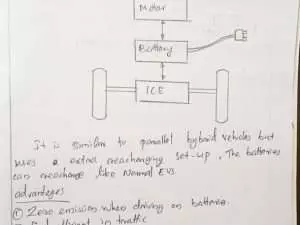 Motor
Battery
ICE
It is similar to parallel hybrid vehicles but
uses a extra reacharging set-up, The batteries
can reacharge, like Normal EVs.
advantages
① Zero emission when driving on batterie.
in traffic